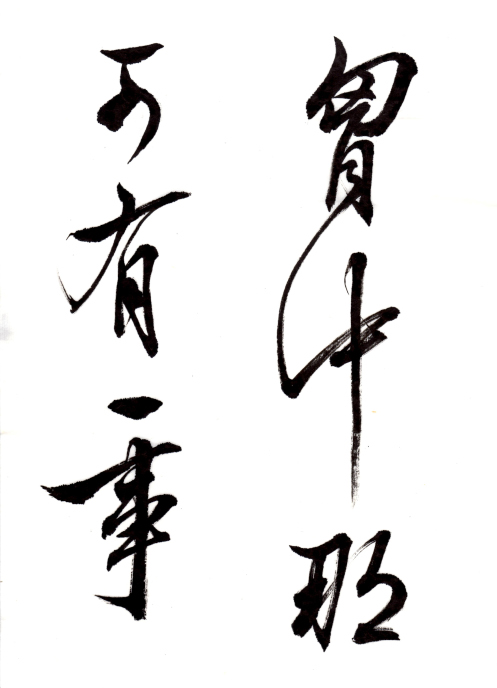 胷中那
可有一事